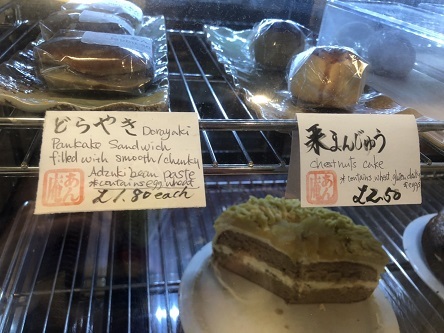 どらやき Dorayaki
Pankake Sandwich
filled with smooth/chunky
Adzuki bean paste
*contains egg wheat
£1.80 each
あん庵
栗まんじゅう
chestnuts cake
*contains wheat, gluten, dairy
*eggs
£2.50